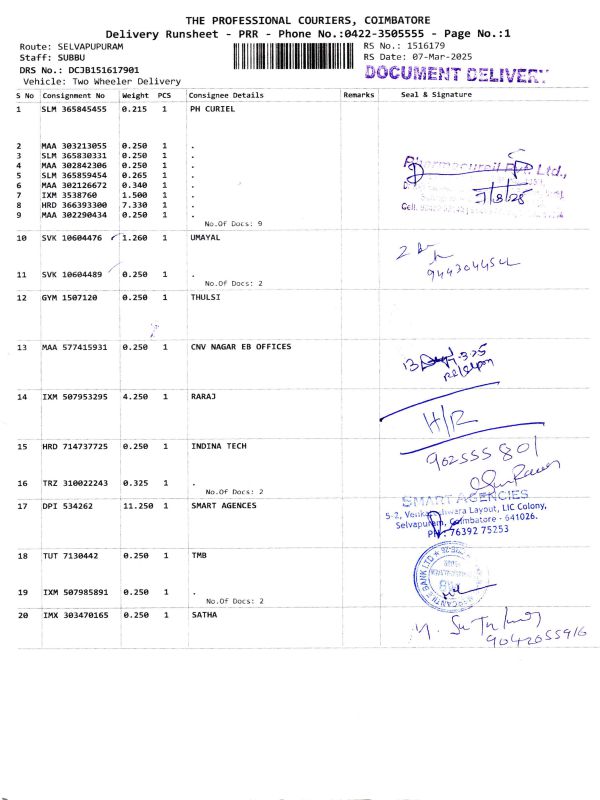 THE PROFESSIONAL COURIERS, COIMBATORE
Delivery Runsheet - PRR - Phone No.:0422-3505555 - Page No.:1
Route: SELVAPUPURAM
RS No.: 1516179
Staff: SUBBU
RS Date: 07-Mar-2025
DRS No.: DCJB151617901
DOCUMENT DELIVERY
Vehicle: Two Wheeler Delivery
S No Consignment No Weight PCS Consignee Details Remarks Seal & Signature
1 SLM 365845455 0.215 1 PH CURIEL
2 MAA 303213055 0.250 1 .
3 SLM 365830331 0.250 1 .
4 MAA 302842306 0.250 1 .
5 SLM 365859454 0.265 1 .
6 MAA 302126672 0.340 1 .
7 IXM 3538760 1.500 1 .
8 HRD 366393300 7.330 1 .
9 MAA 302290434 0.250 1 .
Pvt. Ltd.,
Cell.
No.Of Docs: 9
10 SVK 10604476 1.260 1 UMAYAL
11 SVK 10604489 0.250 1 .
No.Of Docs: 2
12 GYM 1507120 0.250 1 THULSI
13 MAA 577415931 0.250 1 CNV NAGAR EB OFFICES
14 IXM 507953295 4.250 1 RARAJ
H/R
15 HRD 714737725 0.250 1 INDINA TECH
902555801
16 TRZ 310022243 0.325 1 .
No.Of Docs: 2
17 DPI 534262 11.250 1 SMART AGENCES
SMART AGENCIES
5-2, Venkateshwara Layout, LIC Colony,
Selvapuram, Coimbatore - 641026.
PH : 76392 75253
18 TUT 7130442 0.250 1 TMB
19 IXM 507985891 0.250 1 .
No.Of Docs: 2
20 IMX 303470165 0.250 1 SATHA
9042055916